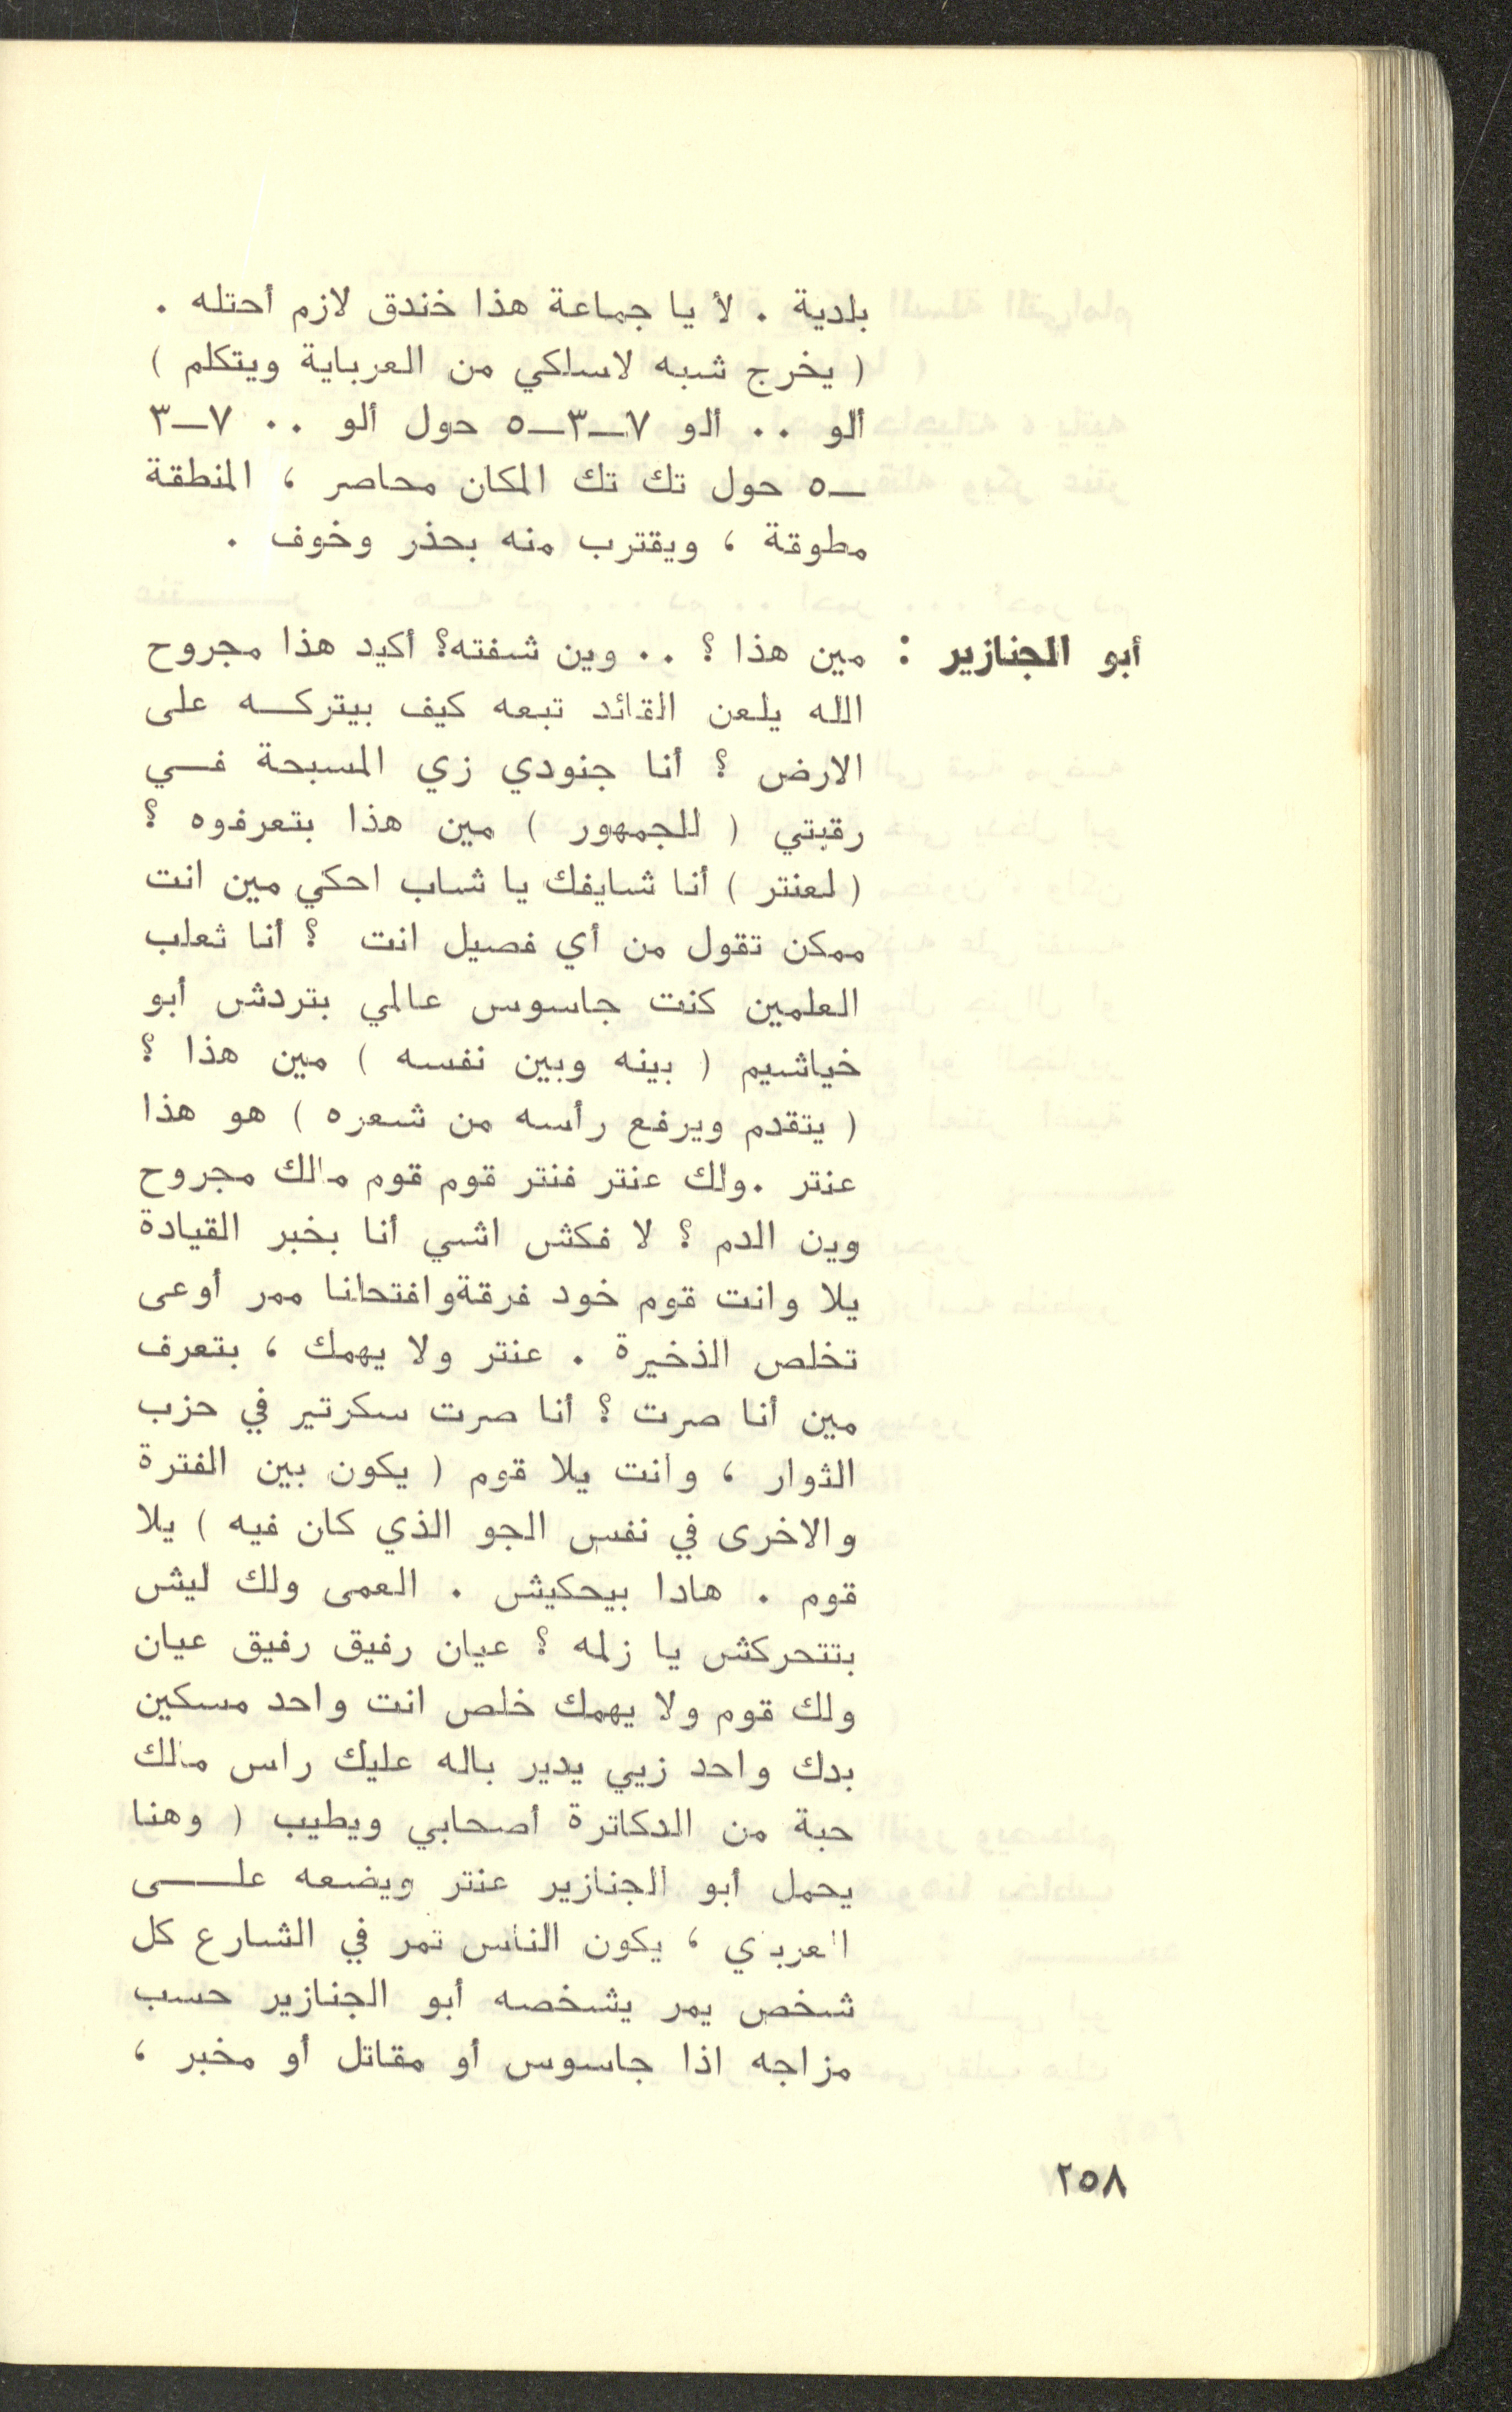 بلدية . لأ يا جماعة هذا خندق لازم أحتله .
( يخرج شبه لاسلكي من العرباية ويتكلم )
ألو .. ألو ٧ــ٣ــ٥ حول ألو .. ٧ــ٣
ــ٥ حول تك تك المكان محاصر ، المنطقة
مطوقة ، ويقترب منه بحذر وخوف .
أبو الجنازير : مين هذا ؟ .. وين شفته؟ أكيد هذا مجروح
الله يلعن القائد تبعه كيف بيتركـــه على
الارض ؟ أنا جنودي زي المسبحة فـــي
رقبتي ( للجمهور ) مين هذا بتعرفوه ؟
( لعنتر ) أنا شايفك يا شاب احكي مين انت
ممكن تقول من أي فصيل انت ؟ أنا ثعلب
العلمين كنت جاسوس عالمي بتردش أبو
خياشيم ( بينه وبين نفسه ) مين هذا ؟
( يتقدم ويرفع رأسه من شعره ) هو هذا
عنتر .ولك عنتر فنتر قوم قوم مالك مجروح
وين الدم ؟ لا فكش اشي أنا بخبر القيادة
يلا وانت قوم خود فرقةوافتحلنا ممر أوعى
تخلص الذخيرة . عنتر ولا يهمك ، بتعرف
مين أنا صرت ؟ أنا صرت سكرتير في حزب
الثوار ، وانت يلا قوم ( يكون بين الفترة
والاخرى في نفس الجو الذي كان فيه ) يلا
قوم . هادا بيحكيش . العمى ولك ليش
بتتحركش يا زلمه ؟ عيان رفيق رفيق عيان
ولك قوم ولا يهمك خلص انت واحد مسكين
بدك واحد زيي يدير باله عليك راس مالك
حبة من الدكاترة أصحابي ويطيب ( وهنا
يحمل أبو الجنازير عنتر ويضعه علـــى
العربي ، يكون الناس تمر في الشارع كل
شخص يمر يشخصه أبو الجنازير حسب
مزاجه اذا جاسوس أو مقاتل أو مخبر ،
٢٥٨